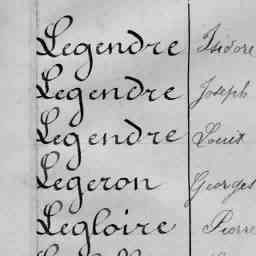 Legendre Isidore
Legendre Joseph
Legendre Louis
Legeron Georges
Legloire Pierre